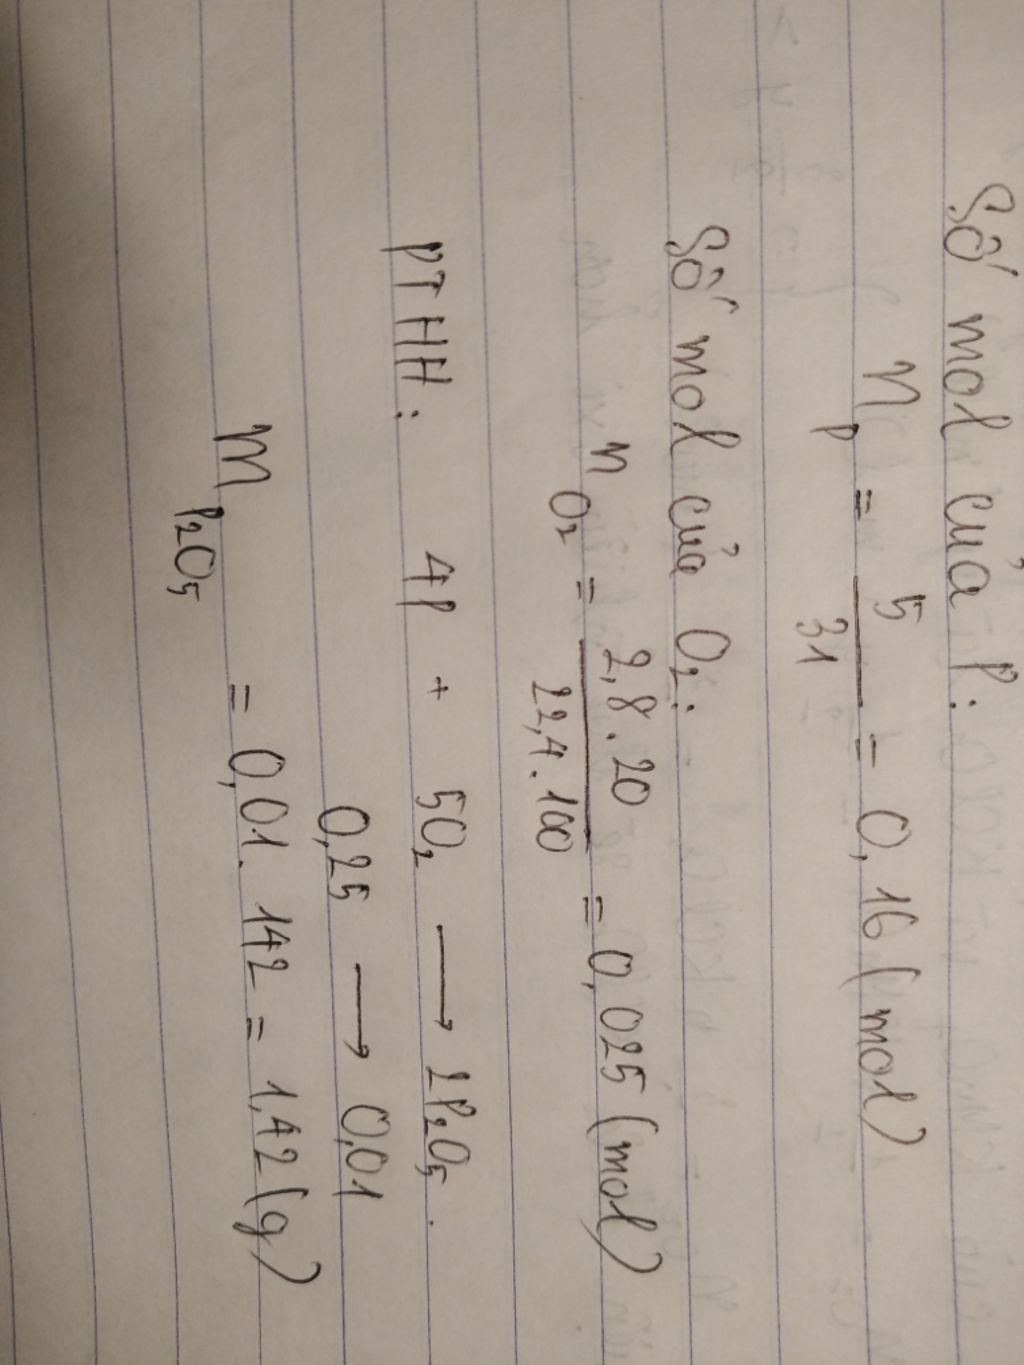 Số mol của P:
n P = 5/31 = 0,16 (mol)
Số mol của O₂:
n O₂ = 2,8.20/22,4.100 = 0,025 (mol)
PTHH: 4P + 5O₂ ⟶ 2P₂O₅.
0,25 ⟶ 0,01
m P₂O₅ = 0,01.142 = 1,42 (g)